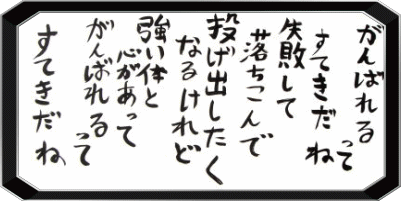 がんばれるって
すてきだね
失敗して
落ちこんで
投げ出したく
なるけれど
強い体と
心があって
がんばれるって
すてきだね